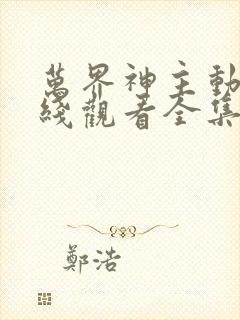 萬界神主動
綫觀看全集
鄭浩